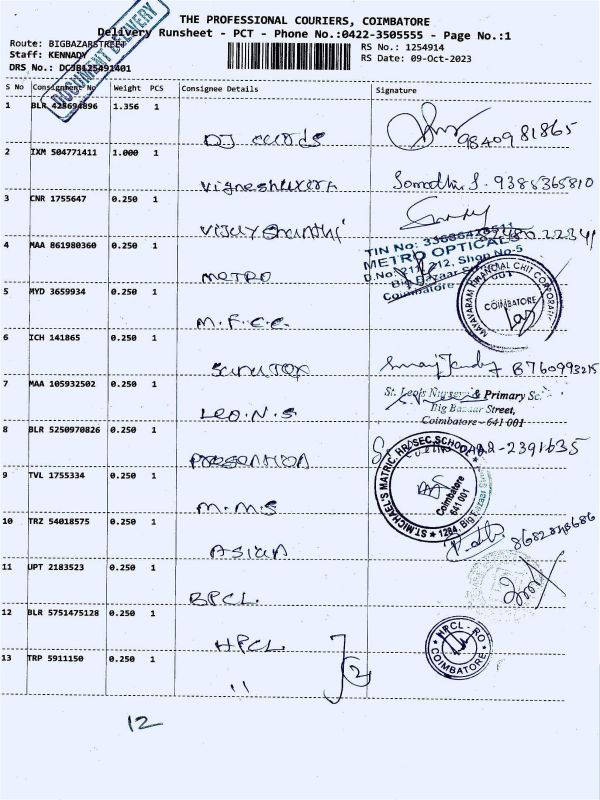 THE PROFESSIONAL COURIERS, COIMBATORE
Delivery Runsheet - PCT - Phone No.:0422-3505555 - Page No.:1
DOCUMENT DELIVERY
Route: BIGBAZARSTREET
Staff: KENNADY
DRS No.:
RS No.: 1254914
RS Date: 09-Oct-2023
S No Consignment No Weight PCS Consignee Details Signature
1 BLR 1.356 1
9840981865
2 IXM 504771411 1.000 1
9388365810
3 CNR 1755647 0.250 1
4 MAA 861980360 0.250 1 METRO
TIN No:
METRO OPTICALS
Shop No-5
Big Bazaar
Coimbatore
5 MYD 3659934 0.250 1 M.F.C.C.
MAYAVARAM FINANCIAL CHIT CORPORATION
COIMBATORE
6 ICH 141865 0.250 1
7 MAA 105932502 0.250 1 LEO.N.S
St. Leo's Nursery & Primary Sc
Big Bazaar Street,
Coimbatore - 641 001
8 BLR 5250970826 0.250 1 PRESENTION
2391635
9 TVL 1755334 0.250 1 M.M.S
ST.MICHAEL'S MATRIC. HR.SEC.SCHOOL
1284, Big Bazaar
Coimbatore
641 001
10 TRZ 54018575 0.250 1 ASIAN
11 UPT 2183523 0.250 1 BPCL.
12 BLR 5751475128 0.250 1 HPCL
HPCL - RO
COIMBATORE
13 TRP 5911150 0.250 1 "
2
12